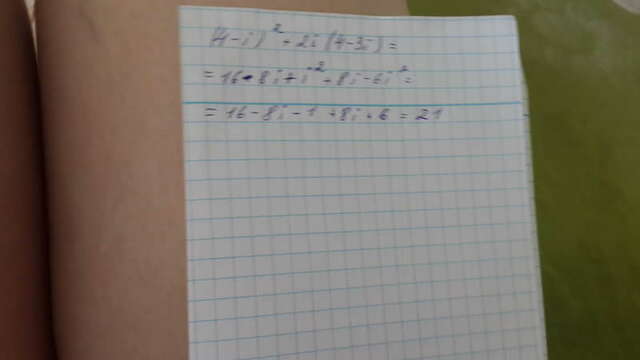 (4-i)² + 2i(4-3i) =
= 16 - 8i + i² + 8i - 6i² =
= 16 - 8i - 1 + 8i + 6 = 21